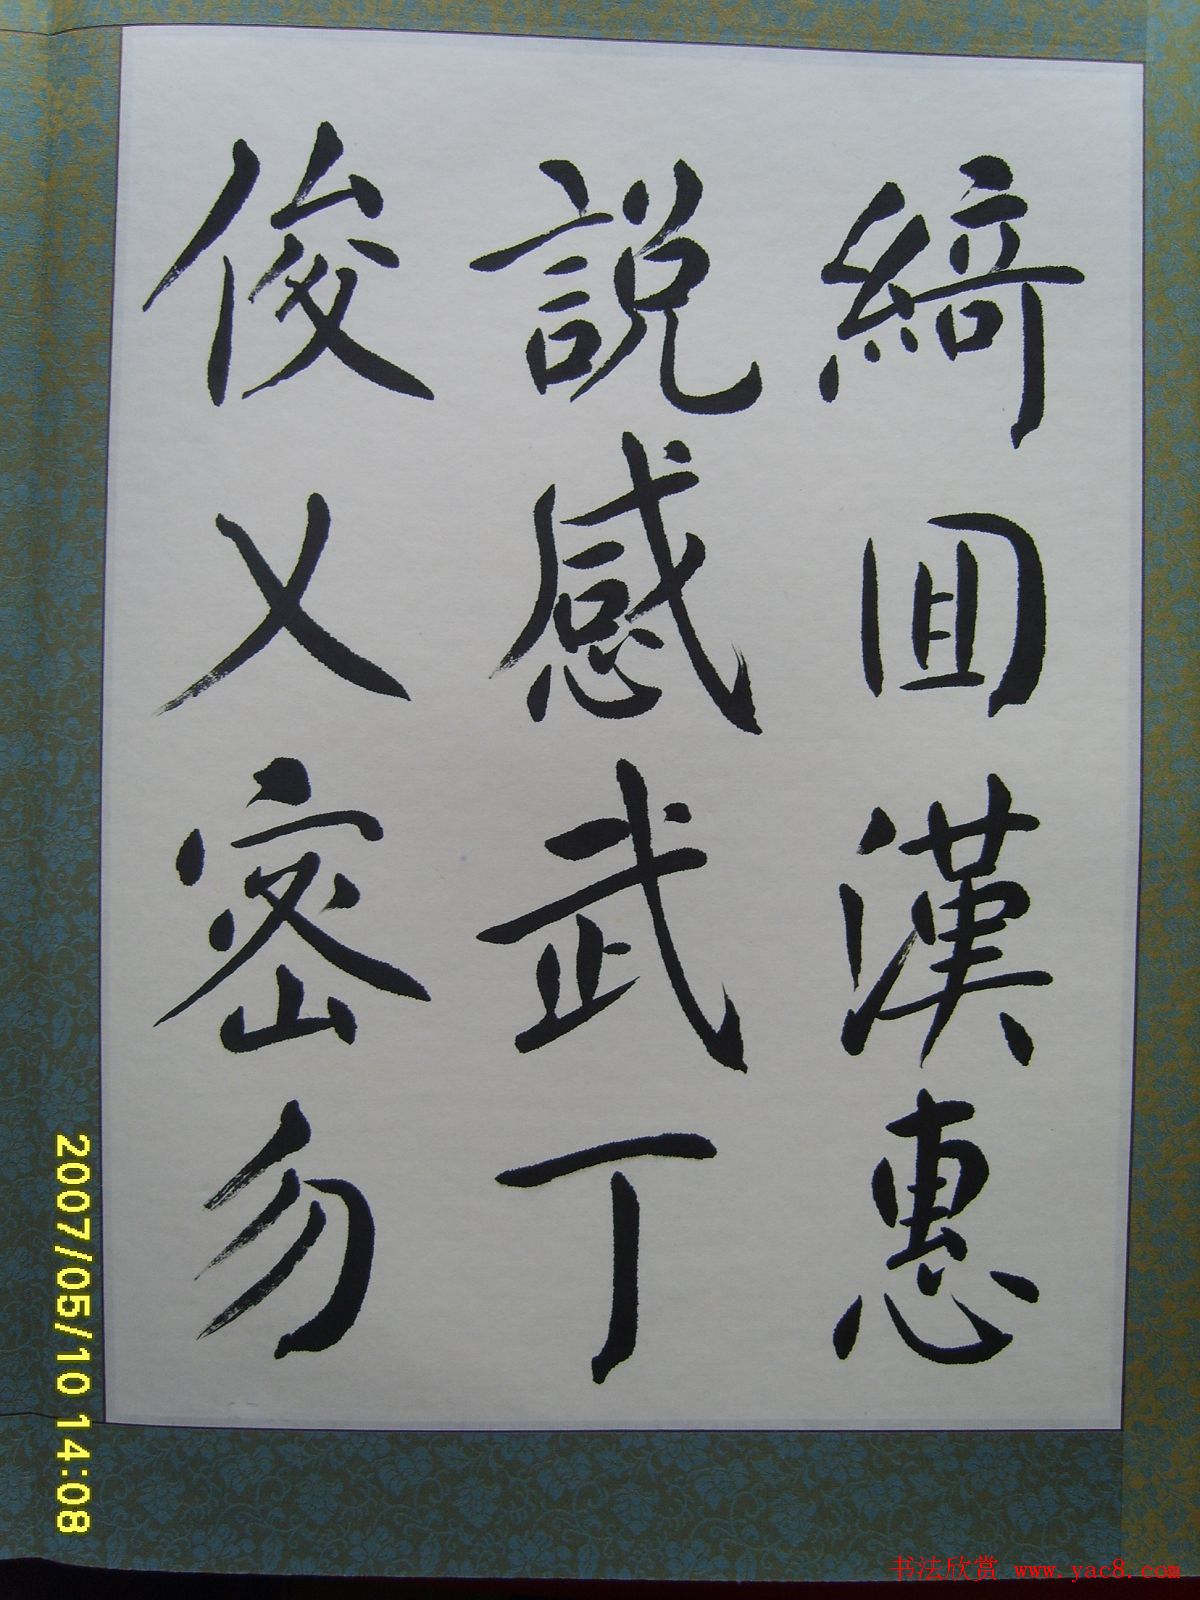 綺回漢惠
說感武丁
俊乂密勿
2007/05/10 14:08
书法欣赏 www.yac8.com